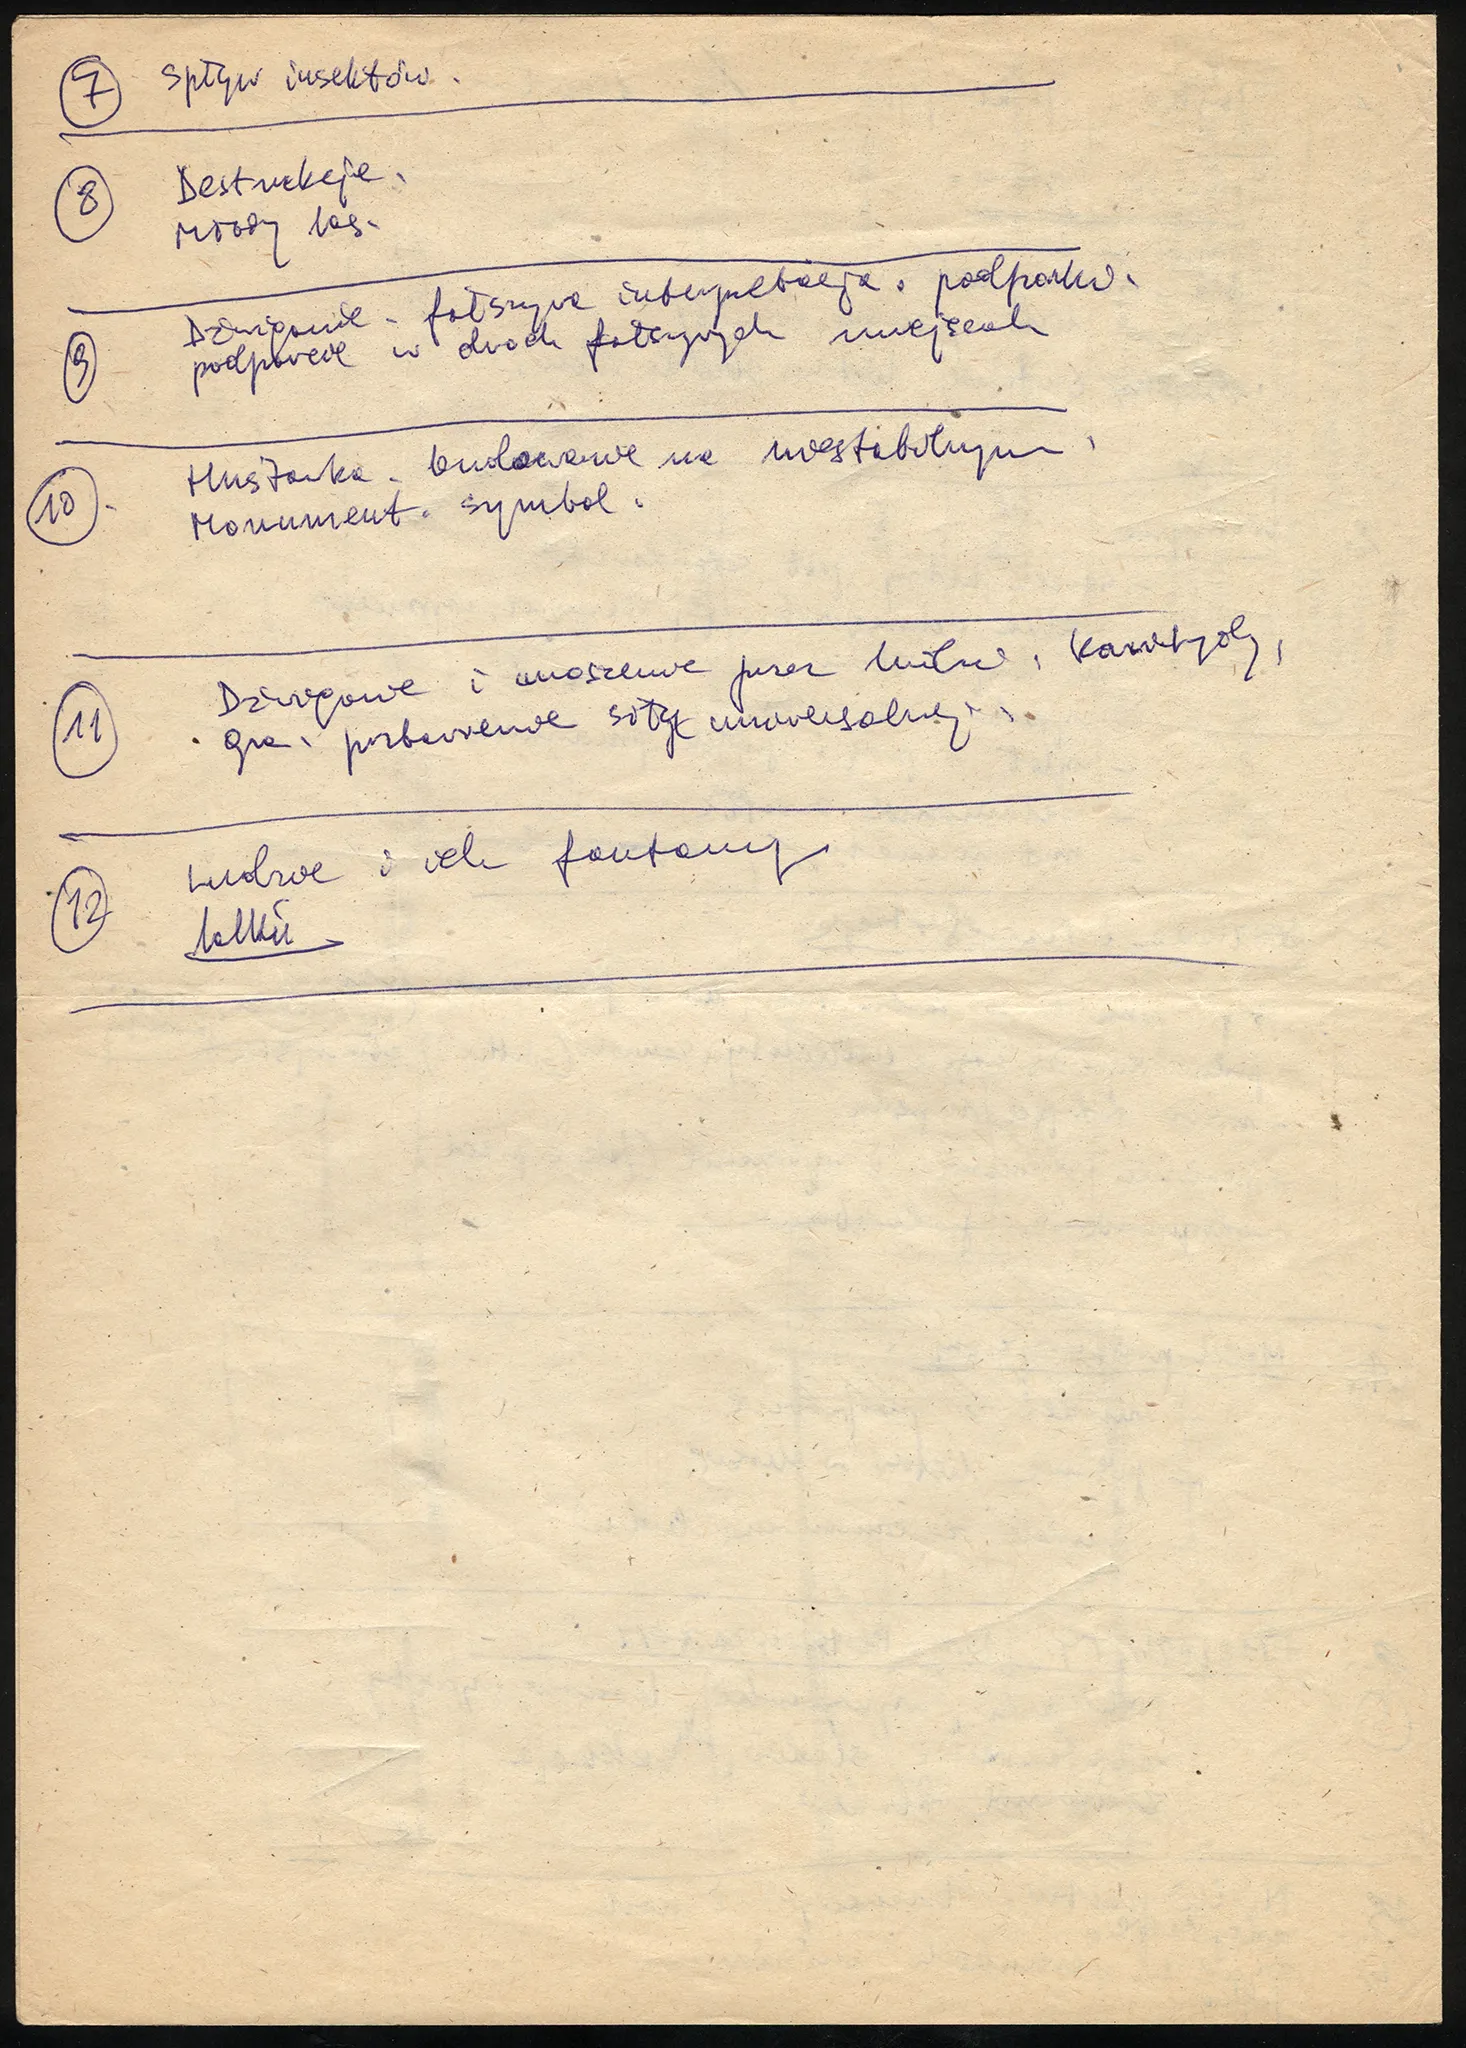 7 Spływ insektów.
8 Destrukcje.
Młody las.
9 Dźwiganie. fałszywa interpretacja. podpórki.
podparcie w dwóch fałszywych miejscach
10. Huśtawka. budowanie na niestabilnym.
Monument. symbol.
11 Dźwiganie i unoszenie przez kilku,
gra. pozbawienie siły uniwersalnej.
12 Ludzie i ich fantomy
lalki